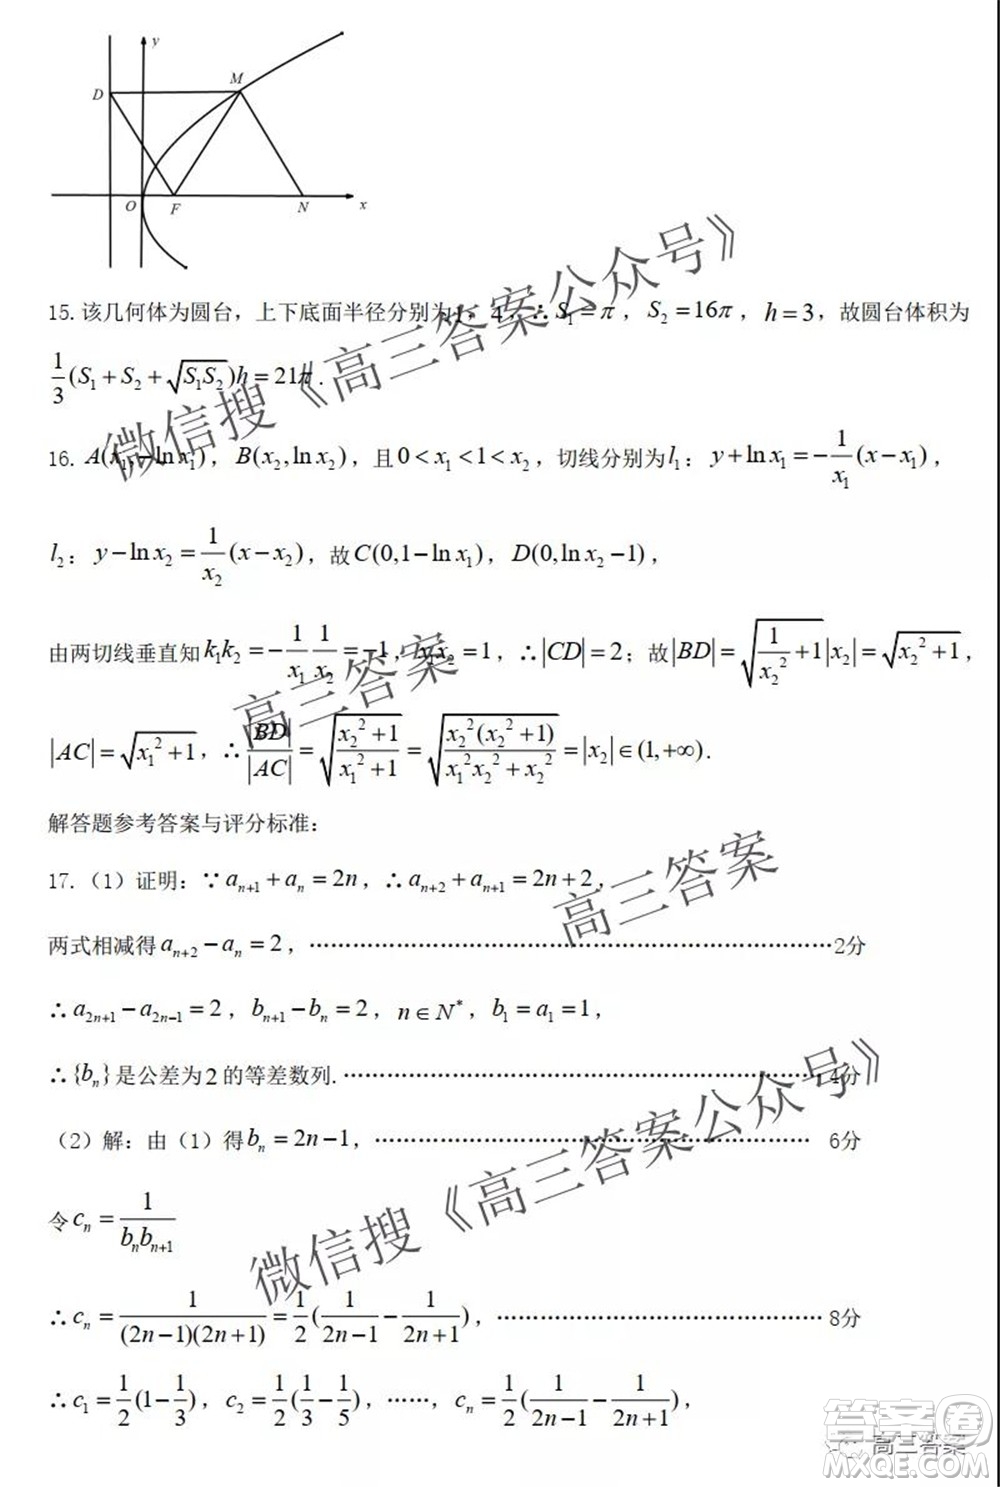 y
D
M
O
F
N
x
15. 该几何体为圆台，上下底面半径分别为1，4，∴S₁=π，S₂=16π，h=3，故圆台体积为
1/3(S₁+S₂+√(S₁S₂))h=21π.
16. A(x₁,−ln x₁)，B(x₂,ln x₂)，且0<x₁<1<x₂，切线分别为l₁：y+ln x₁=−1/x₁(x−x₁)，
l₂：y−ln x₂=1/x₂(x−x₂)，故C(0,1−ln x₁)，D(0,ln x₂−1)，
由两切线垂直知k₁k₂=−1/x₁ 1/x₂=−1，x₁x₂=1，∴|CD|=2；故|BD|=√(1/x₂²+1)|x₂|=√(x₂²+1)，
|AC|=√(x₁²+1)，∴|BD|/|AC|=√((x₂²+1)/(x₁²+1))=√(x₂²(x₂²+1)/(x₁²x₂²+x₂²))=|x₂|∈(1,+∞).
解答题参考答案与评分标准：
17.（1）证明：∵aₙ₊₁+aₙ=2n，∴aₙ₊₂+aₙ₊₁=2n+2，
两式相减得aₙ₊₂−aₙ=2，……………………2分
∴a₂ₙ₊₁−a₂ₙ₋₁=2，bₙ₊₁−bₙ=2，n∈N*，b₁=a₁=1，
∴{bₙ}是公差为2的等差数列.……………………4分
（2）解：由（1）得bₙ=2n−1，…………………… 6分
令cₙ=1/(bₙbₙ₊₁)
∴cₙ=1/((2n−1)(2n+1))=1/2(1/(2n−1)−1/(2n+1))，……………………8分
∴c₁=1/2(1−1/3)，c₂=1/2(1/3−1/5)，……，cₙ=1/2(1/(2n−1)−1/(2n+1))，
微信搜《高三答案公众号》
高三答案
高三答案
微信搜《高三答案公众号》
答案卷
高三答案
MXQE.COM